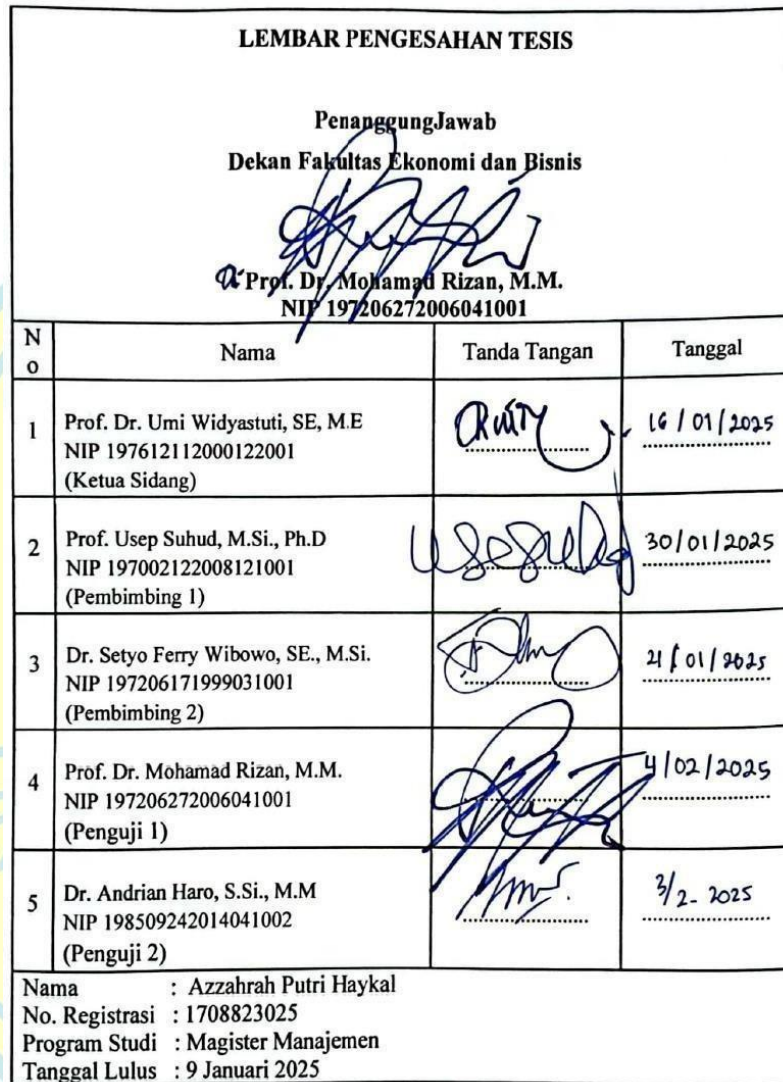 LEMBAR PENGESAHAN TESIS
PenanggungJawab
Dekan Fakultas Ekonomi dan Bisnis
Prof. Dr. Mohamad Rizan, M.M.
NIP 197206272006041001
No Nama Tanda Tangan Tanggal
1 Prof. Dr. Umi Widyastuti, SE, M.E 16/01/2025
NIP 197612112000122001
(Ketua Sidang)
2 Prof. Usep Suhud, M.Si., Ph.D 30/01/2025
NIP 197002122008121001
(Pembimbing 1)
3 Dr. Setyo Ferry Wibowo, SE., M.Si. 21/01/2025
NIP 197206171999031001
(Pembimbing 2)
4 Prof. Dr. Mohamad Rizan, M.M. 4/02/2025
NIP 197206272006041001
(Penguji 1)
5 Dr. Andrian Haro, S.Si., M.M 3/2-2025
NIP 198509242014041002
(Penguji 2)
Nama : Azzahrah Putri Haykal
No. Registrasi : 1708823025
Program Studi : Magister Manajemen
Tanggal Lulus : 9 Januari 2025